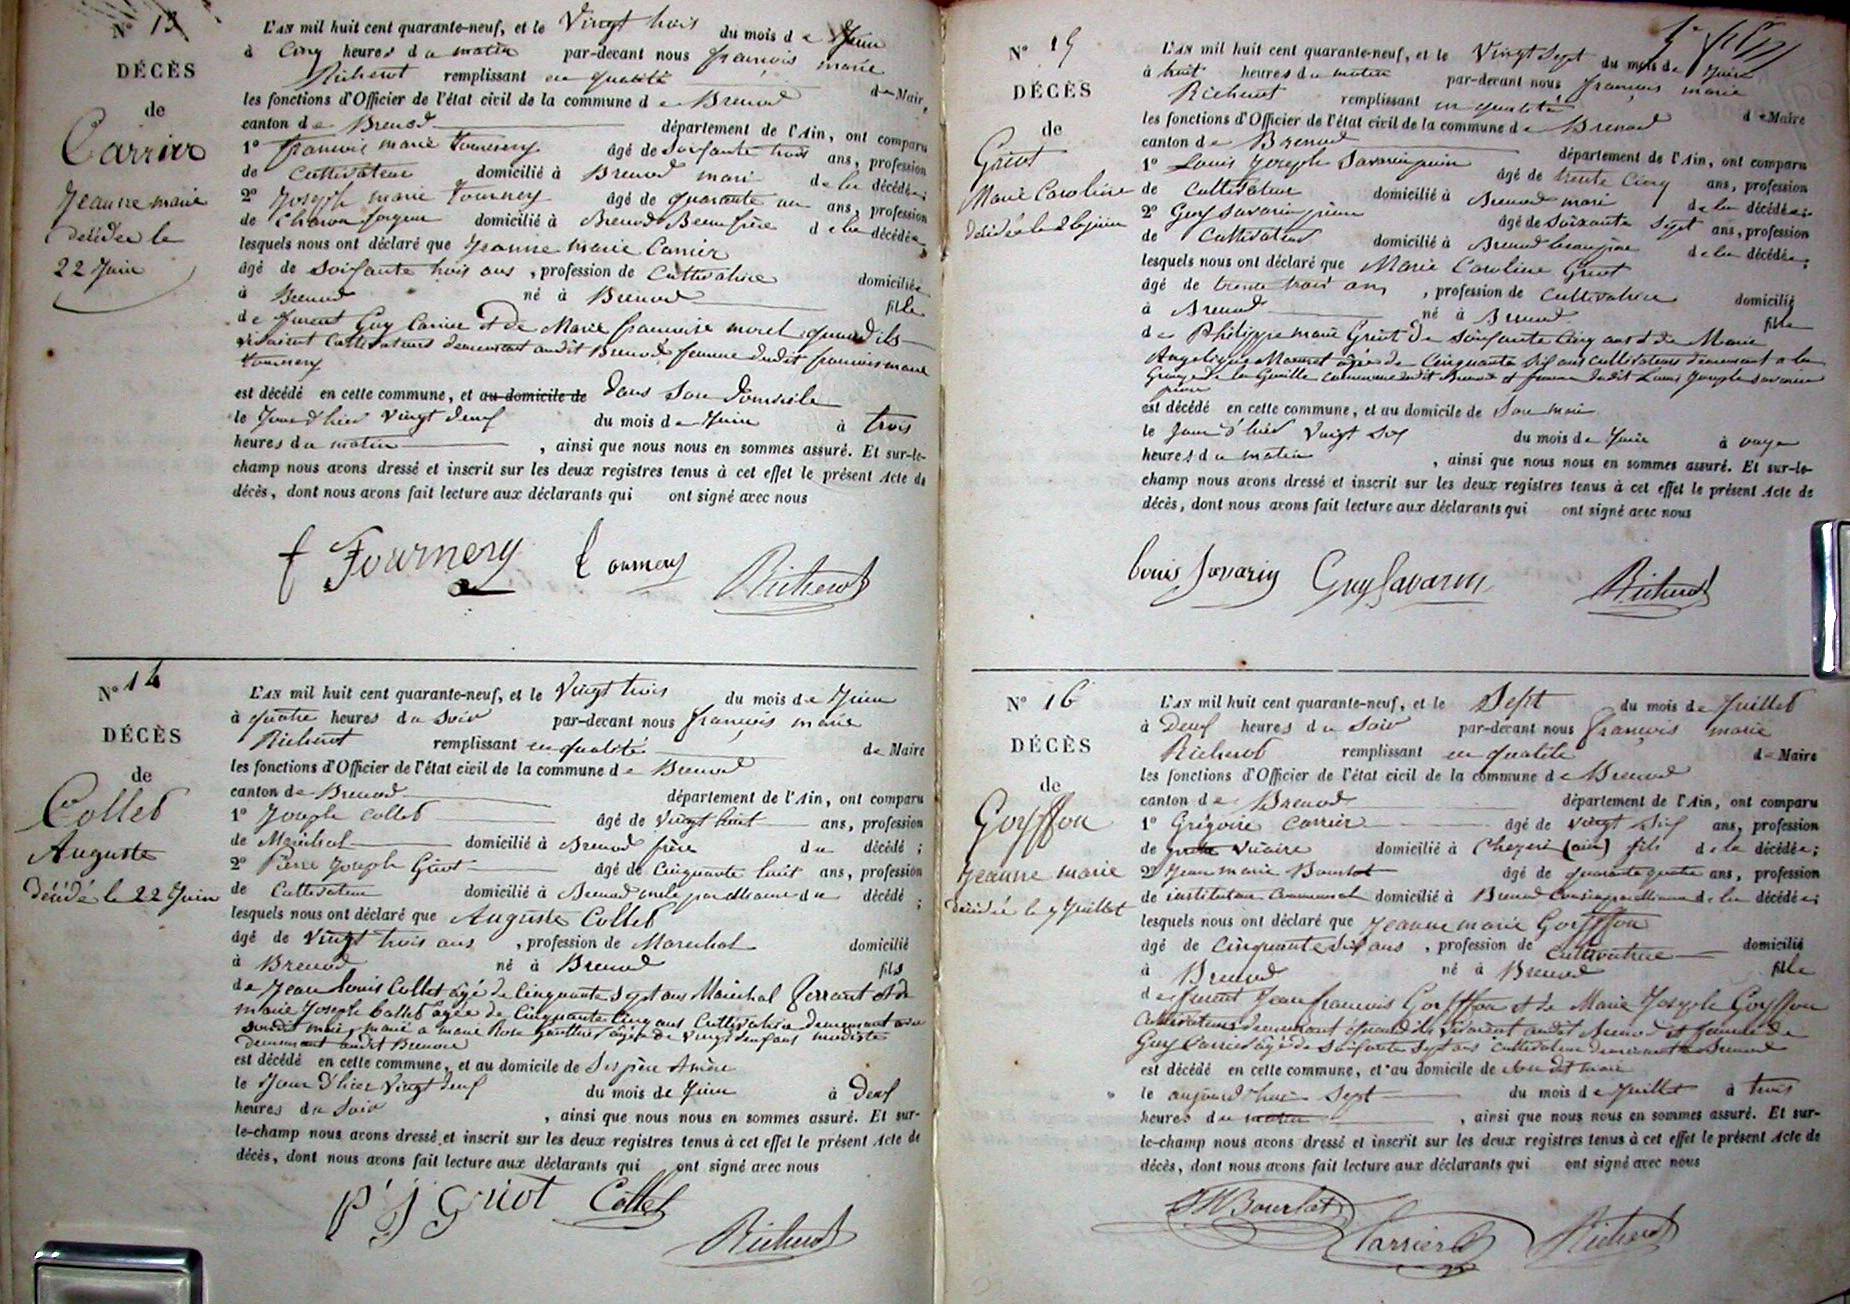 N° 13
DÉCÈS
de
Carrier
Jeanne marie
décédée le
22 Juin
L'AN mil huit cent quarante-neuf, et le Vingt trois du mois de Juin
à Cinq heures du matin par-devant nous françois marie
Richerot remplissant en qualité de Maire
les fonctions d'Officier de l'état civil de la commune de Brenod
canton de Brenod département de l'Ain, ont comparu
1° françois marie Tournery âgé de Soixante trois ans, profession
de Cultivateur domicilié à Brenod mari de la décédée;
2° Joseph marie Tournery âgé de quarante un ans, profession
de Charon forgeur domicilié à Brenod Beau frère de la décédée;
lesquels nous ont déclaré que Jeanne marie Carrier
âgé de Soixante trois ans, profession de Cultivatrice domiciliée
à Brenod né à Brenod fille
de furent Guy Carrier et de Marie françoise moret quand ils
vivaient Cultivateurs demeurant audit Brenod, femme dudit francois marie
Tournery
est décédé en cette commune, et au domicile de dans Son domicile
le Jour d'hier vingt deux du mois de Juin à trois
heures du matin, ainsi que nous nous en sommes assuré. Et sur-le-
champ nous avons dressé et inscrit sur les deux registres tenus à cet effet le présent Acte de
décès, dont nous avons fait lecture aux déclarants qui ont signé avec nous
f Fournery Tournery Richerot
N° 14
DÉCÈS
de
Collet
Auguste
décédé le 22 Juin
L'AN mil huit cent quarante-neuf, et le Vingt trois du mois de Juin
à quatre heures du Soir par-devant nous françois marie
Richerot remplissant en qualité de Maire
les fonctions d'Officier de l'état civil de la commune de Brenod
canton de Brenod département de l'Ain, ont comparu
1° Joseph Collet âgé de vingt huit ans, profession
de Maréchal domicilié à Brenod frère du décédé;
2° Pierre Joseph Griot âgé de Cinquante huit ans, profession
de Cultivateur domicilié à Brenod oncle par alliance du décédé;
lesquels nous ont déclaré que Auguste Collet
âgé de vingt trois ans, profession de Marechal domicilié
à Brenod né à Brenod fils
de Jean Louis Collet âgé de Cinquante Sept ans Maréchal ferrant et de
marie Joseph Collet âgée de Cinquante Cinq ans Cultivatrice demeurant avec
Sondit mari, marié a marie Rose Gauthier âgée de vingt deux ans modiste
demeurant audit Brenod
est décédé en cette commune, et au domicile de Ses père & mère
le Jour d'hier Vingt deux du mois de Juin à Deux
heures du Soir, ainsi que nous nous en sommes assuré. Et sur-
le-champ nous avons dressé et inscrit sur les deux registres tenus à cet effet le présent Acte de
décès, dont nous avons fait lecture aux déclarants qui ont signé avec nous
p J Griot Collet
Richerot
N° 15
DÉCÈS
de
Griot
Marie Caroline
décédée le 26 juin
L'AN mil huit cent quarante-neuf, et le Vingt Sept du mois de Juin
à huit heures du matin par-devant nous françois marie
Richerot remplissant en qualité de Maire
les fonctions d'Officier de l'état civil de la commune de Brenod
canton de Brenod département de l'Ain, ont comparu
1° Louis Joseph Savarin âgé de trente Cinq ans, profession
de Cultivateur domicilié à Brenod mari de la décédée;
2° Guy Savarin âgé de Soixante Sept ans, profession
de Cultivateur domicilié à Brenod beau père de la décédée;
lesquels nous ont déclaré que Marie Caroline Griot
âgé de trente trois ans, profession de Cultivatrice domicilié
à Brenod né à Brenod fille
de Philippe marie Griot de Soixante Cinq ans & de Marie
Angelique âgée de Cinquante Six ans cultivateurs demeurant a la
Grange de la commune dudit Brenod et femme dudit Louis Joseph Savarin
est décédé en cette commune, et au domicile de Son mari
le Jour d'hier Vingt Six du mois de Juin à onze
heures du matin, ainsi que nous nous en sommes assuré. Et sur-le-
champ nous avons dressé et inscrit sur les deux registres tenus à cet effet le présent Acte de
décès, dont nous avons fait lecture aux déclarants qui ont signé avec nous
Louis Savarin Guy Savarin Richerot
N° 16
DÉCÈS
de
Goyffon
Jeanne marie
décédée le 7 Juillet
L'AN mil huit cent quarante-neuf, et le Sept du mois de Juillet
à Deux heures du Soir par-devant nous françois marie
Richerot remplissant en qualité de Maire
les fonctions d'Officier de l'état civil de la commune de Brenod
canton de Brenod département de l'Ain, ont comparu
1° Grégoire Carrier âgé de vingt Six ans, profession
de vicaire domicilié à Chezeri (ain) fils de la décédée;
2° Jean marie Bourlot âgé de quarante quatre ans, profession
de instituteur Communal domicilié à Brenod Cousin par alliance de la décédée;
lesquels nous ont déclaré que Jeanne marie Goyffon
âgé de Cinquante Six ans, profession de Cultivatrice domicilié
à Brenod né à Brenod fille
de furent Jean francois Goyffon et de Marie Joseph Goyffon
Cultivateurs demeurant quand ils vivaient audit Brenod et femme de
Guy Carrier âgé de Soixante Sept ans cultivateur demeurant a Brenod
est décédé en cette commune, et au domicile de Son dit mari
le aujourd'hui Sept du mois de Juillet à trois
heures du matin, ainsi que nous nous en sommes assuré. Et sur-
le-champ nous avons dressé et inscrit sur les deux registres tenus à cet effet le présent Acte de
décès, dont nous avons fait lecture aux déclarants qui ont signé avec nous
JM Bourlot Carrier Richerot